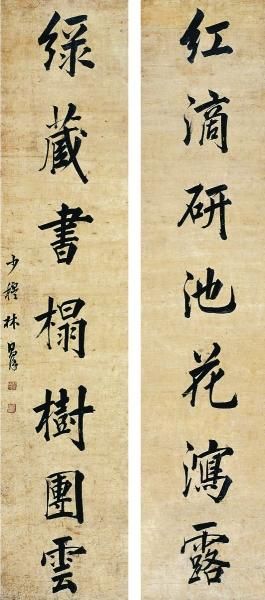 紅滴研池花瀉露
綠藏書榻樹團雲
少穆林則徐